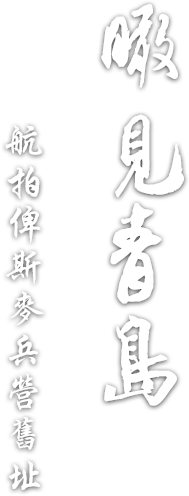 瞰見青島
航拍俾斯麥兵營舊址